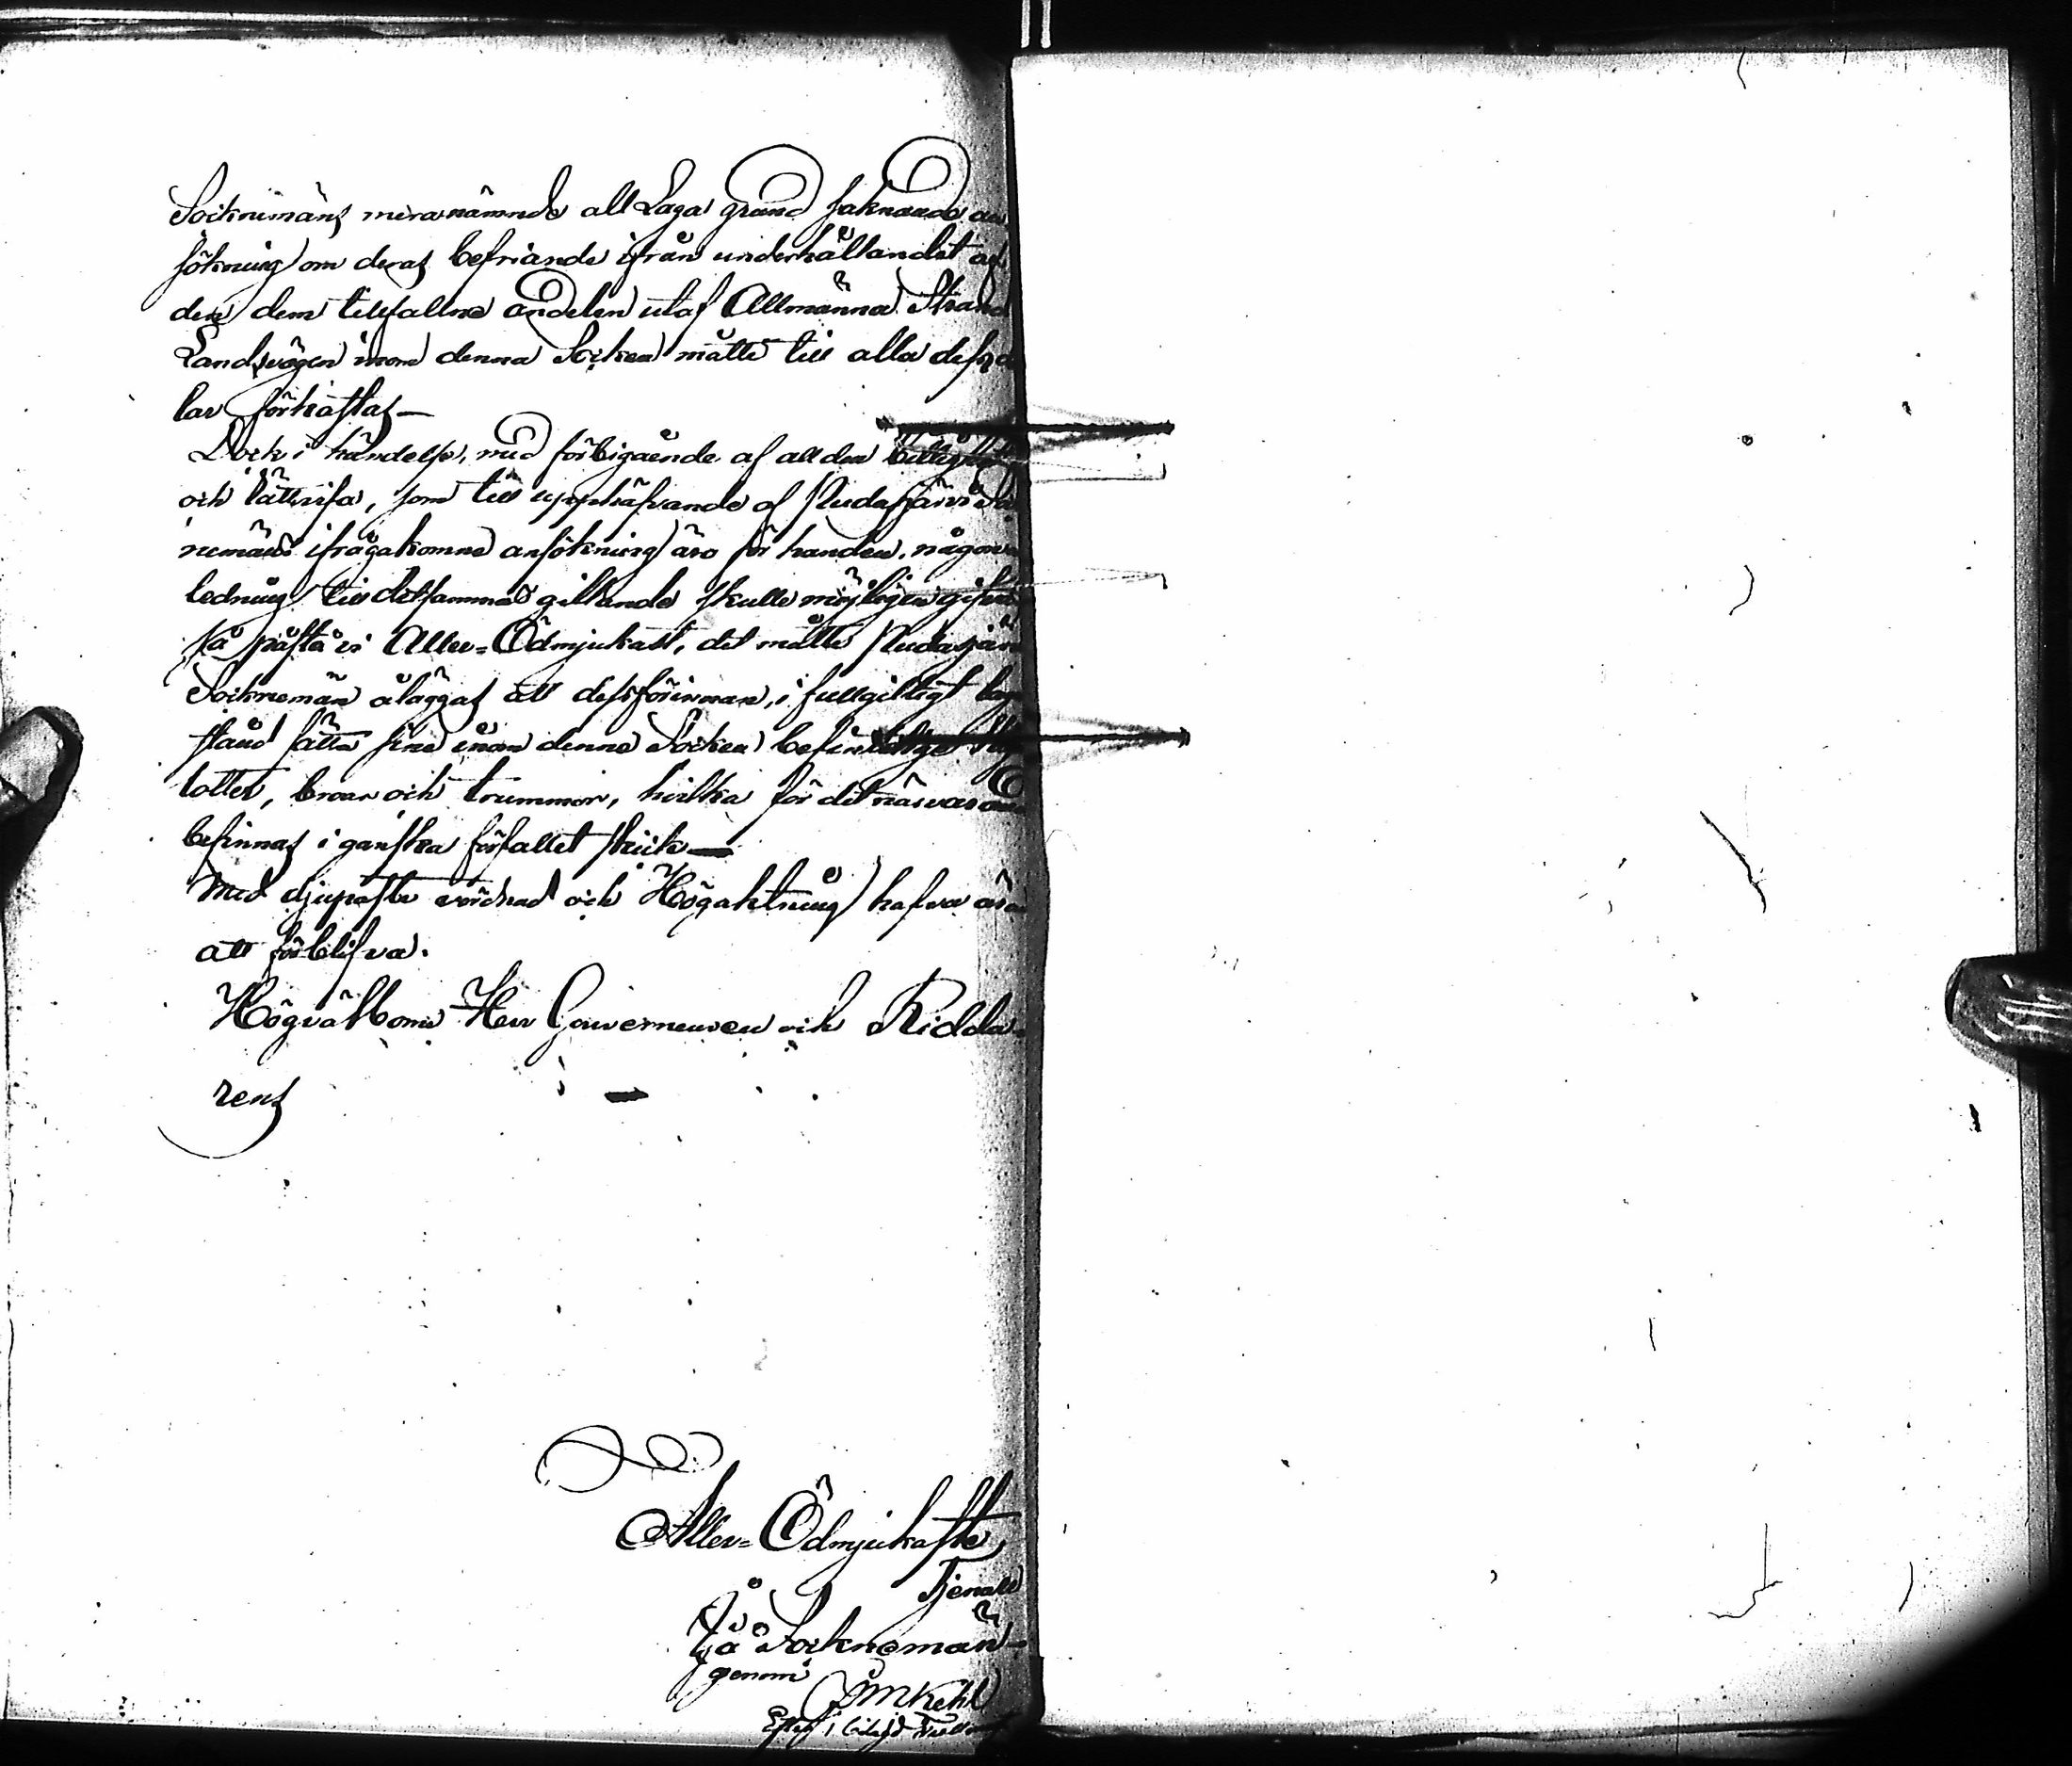 Socknemäns meranämnde all Laga grund saknande an
sökning om deras befriande ifrån underhållandet af
den dem tillfallne andelen utaf Allmänna Strand
Landsvägen inom denna Socken måtte till alla dess de
lar förkastas —
Dock i händelse, med förbigående af all den billighet
och rättvisa, som till upphäfvande af Pudasjärvi Sock
nemäns ifrågakomne ansökning äro för handen, någon
ledning till detsammas gillande skulle möjligen gifvas
så påstå vi Aller-Ödmjukast, det måtte Pudasjärvi
Socknemän åläggas att dessförinnan, i fullgilligt
stånd sätta sine inom denne Socken befintelige
lotter, broar och trummor, hvilka för det närvarande
befinnas i ganska förfallet skick —
Med djupaste vördnad och Högaktning hafva äran
att förblifva.
Högvälborne Herr Gouverneuren och Ridda-
rens
Aller-Ödmjukaste
Tjenare
Ijå Socknemän
genom
Kehl
Efter i bilagd